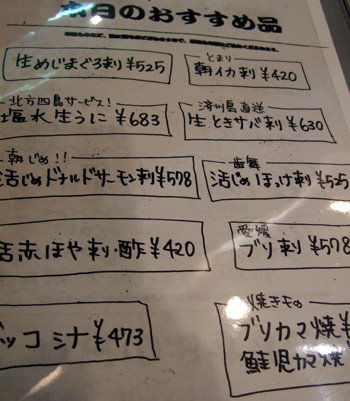 本日のおすすめ品
生めじまぐろ刺 ¥525
とまり
朝イカ刺 ¥420
北方四島サービス!
塩水生うに ¥683
済州島直送
生ときサバ刺 ¥630
朝じめ!!
活じめドナルドサーモン刺 ¥578
歯舞
活じめほっけ刺 ¥525
活赤ほや刺・酢 ¥420
愛媛
ブリ刺 ¥578
ッコミナ ¥473
焼きもの
ブリカマ焼 ¥
鮭児カマ焼